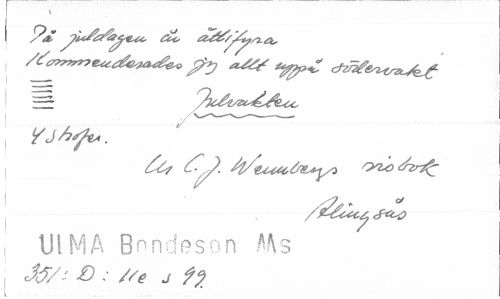 På juldagen år åttifyra
Kommenderades jag allt uppå södervakt
Julvakten
4 strofer.
Ur C. J. Wennbergs visbok
Alingsås
ULMA Bondeson Ms
351: D: 11e s 99.